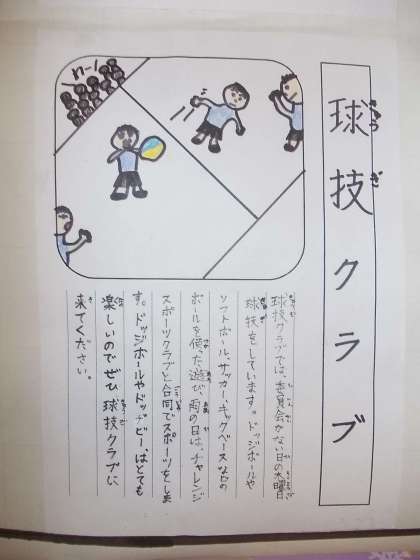 球技クラブ
きゅうぎ
わーー
球技クラブでは、委員会がない日の火曜日
球技をしています。ドッジボールや
ソフトボール、サッカー、キックベースなどの
ボールを使った遊び、雨の日は、チャレンジ
スポーツクラブと合同でスポーツをしま
す。ドッジボールやドッヂビーはとても
楽しいのでぜひ球技クラブに
来てください。